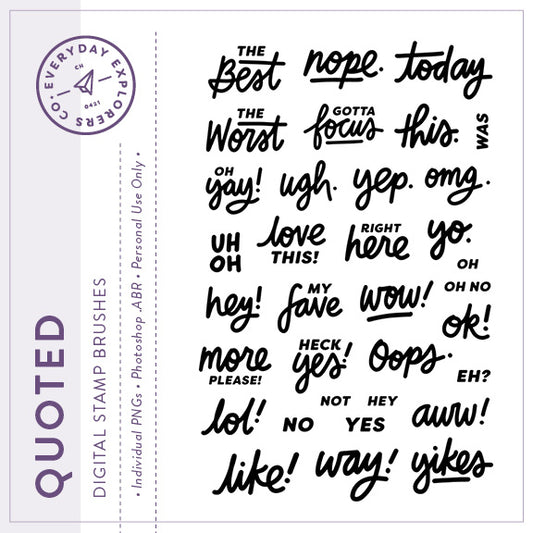 EVERYDAY EXPLORERS CO.
CH
0421
QUOTED
DIGITAL STAMP BRUSHES
• Individual PNGs • Photoshop .ABR • Personal Use Only •
THE Best nope. today
THE Worst GOTTA focus this. WAS
OH yay! ugh. yep. omg.
UH OH love THIS! RIGHT here yo.
OH
OH NO
hey! MY fave wow! ok!
more PLEASE! HECK yes! Oops. EH?
lol! NO NOT YES HEY aww!
like! way! yikes